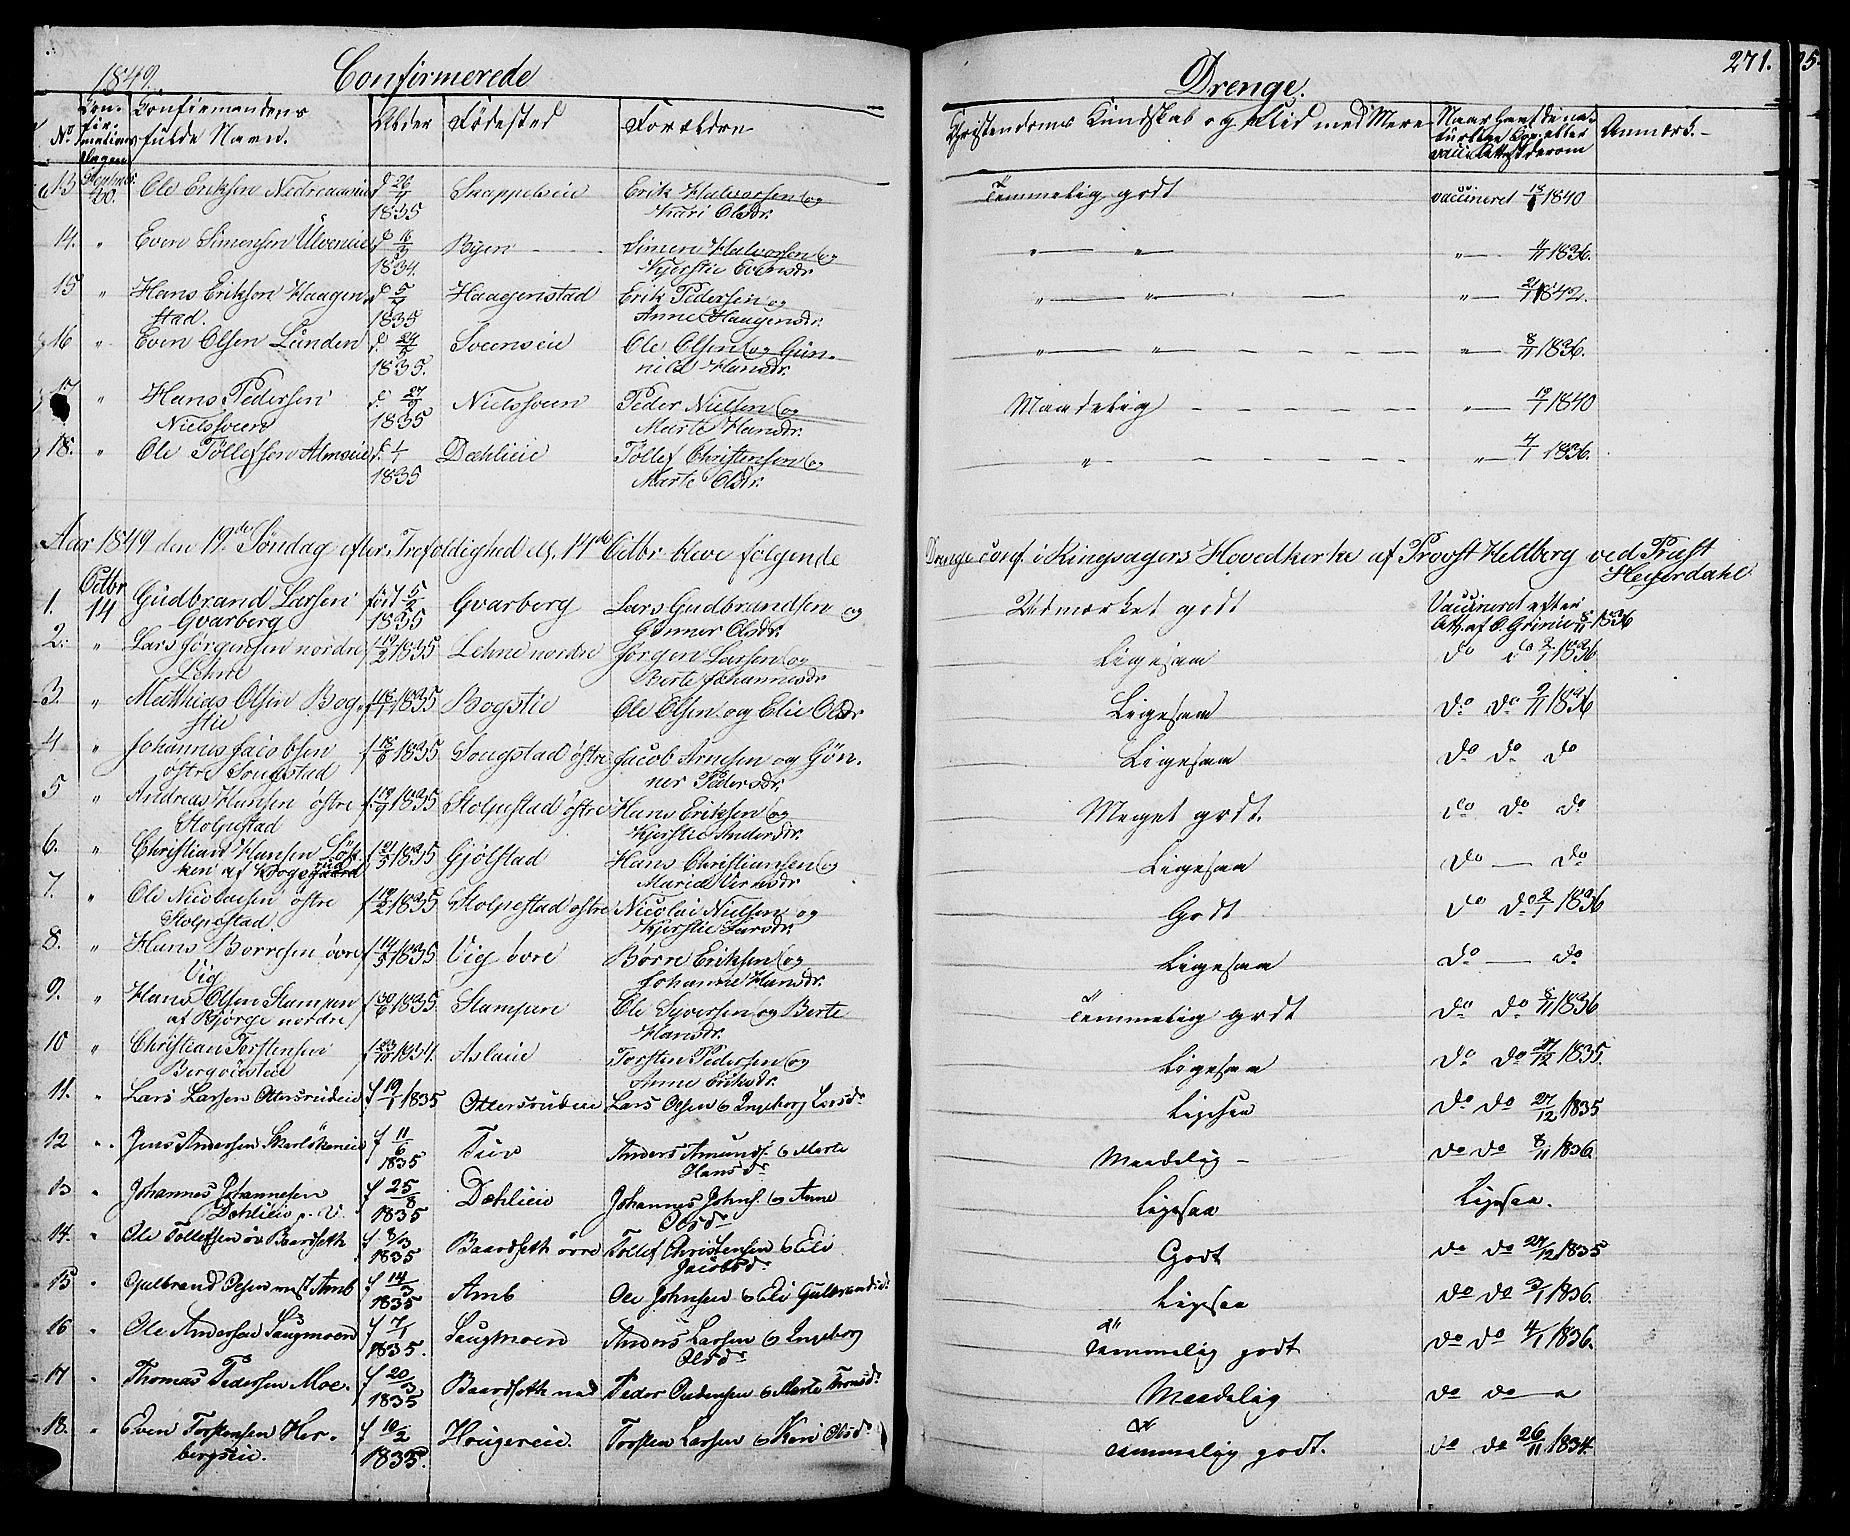 1849. Confirmerede Drenge. 271.
No Con-firmationsdagen Confirmandens fulde Navn. Alder Fødested Forældre Christendoms Kundskab og Flid med Mere Naar havt de naturlige Kop. eller vacc. Attest derom Anmærk.
13 20 Ole Eriksen d 20/4 1835 Snappeleie Erik Halvorsen og Kari Olsdr. Temmelig godt vaccineret 1840
14. " Even Simensen Ulveneie 1834. Byen Simen Halvorsen og Kjerstie Evensdr. " " " 1836.
15 " Hans Eriksen Haagenstad. 1835 Haagenstad Erik Pedersen og Anne Haagensdr. " " " 1842.
16 " Even Olsen Lunden 1835. Sveenseie Ole Olsen og Gunnild Hansdr. " " " 8/11 1836.
17 " Hans Pedersen Nielssveen d. 27/9 1835 Nielssveen Peder Nielsen og Marte Hansdr. Maadelig " 1840
18. " Ole Tollefsen Almseie 1835 Dæhlieie Tollef Christensen og Marte Olsdr. " " 1836.
Aar 1849 den 19de Søndag efter Trefoldighed d. 14de Octbr bleve følgende Drenge conf. i Ringsagers Hovedkirke af Provst Hellberg ved Præst Heyerdahl
1. Octbr 14 Gudbrand Larsen Gvarberg født 5/2 1835 Gvarberg Lars Gudbrandsen og Gunner Olsdr. Udmærket godt Vaccineret efter Att. af O. Grønie 8/11 1836
2. " Lars Jørgensen nordre Lehne f 19/2 1835 Lehne nordre Jørgen Larsen og Berte Johannesdr Ligesaa do do 2/1 1836
3. " Matthias Olsen Bogstie f 18/1 1835 Bogstie Ole Olsen og Elie Olsdr Ligesaa do do 1836
4 " Johannes Jacobsen østre Sougstad 1835 Sougstad østre Jacob Arnesen og Gønner Pedersdr. Ligesaa do do do
5 " Andreas Hansen østre Stolpestad f 19/9 1835 Stolpestad østre Hans Eriksen og Kjerstie Andersdr. Meget godt. do do do
6. " Christian Hansen af Krogsrud 1835 Gjølstad Hans Christiansen og Marie Ligesaa do — do
7. " Ole Nicolaisen østre Stolpestad. 1835 Stolpestad østre Nicolai Nielsen og Kjerstie Larsdr. Godt do do 2/1 1836
8. " Hans Børresen øvre Vig f 14/5 1835 Vig øvre Børre Eriksen og Johanne Hansdr. Ligesaa do — do
9. " Hans Olsen Stampen af Bjørge nordre f 30/6 1835 Stampen Ole Syversen og Berte Hansdr. Temmelig godt do do 8/11 1836
10 " Christian Torstensen f 23/10 1834. Aslaie Torsten Pedersen og Anne Eriksdr. Ligesaa do do 27/12 1835.
11. " Lars Larsen Ottersrudeie f 19/1 1835 Ottersrudeie Lars Olsen o Ingeborg Larsdr Ligesaa do do 27/12 1835
12 " Jens Andersen Skarløkeneie f 11/6 1835 Tuv Anders Amunds. o Marte Hansdr Maadelig – do do 8/11 1836
13 " Johannes Johannesen Dæhlieie f 25/8 1835 Dæhlieie Johannes Johns. o Anne Olsdr Ligesaa Ligesaa.
14. " Ole Tollefsen øv Baardseth f 8/3 1835 Baardseth øvre Tollef Christensen o Eli Jacobsdr Godt do do 27/12 1835
15 " Gulbrand Olsen Amb f 14/3 1835 Amb Ole Johnsen o Eli Gulbrandsdr Ligesaa do do 2/1 1836.
16 " Ole Andersen Saugmoen f 7/1 1835. Saugmoen Anders Larsen o Ingeborg Olsdr Temmelig godt do do 4/1 1836.
17 " Thomas Pedersen Moe. f 20/3 1835 Baardseth ned Peder Oudensen o Marte Thomsdr Maadelig do do
18. " Even Torstensen Herbergseie. f 10/2 1835. Hougereie. Torsten Larsen o Kari Olsdr Temmelig godt. do do 26/11 1834.